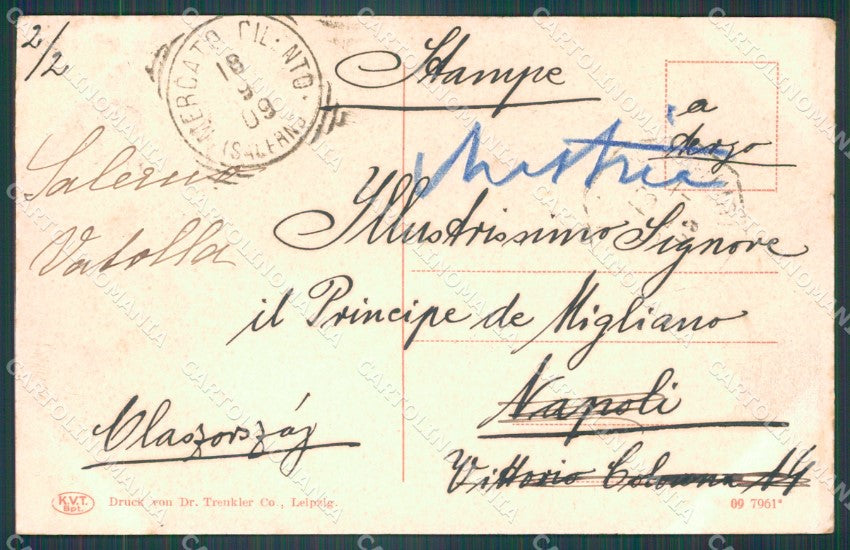 2/2
MERCATO CILENTO
(SALERNO)
Stampe
a
tergo
Salerno
Vatolla
Illustrissimo Signore
il Principe de Migliano
Napoli
Vittorio Colonna 14
Olaszország
K.V.T.
Bpt.
Druck von Dr. Trenkler Co., Leipzig.
09 7961
CARTOLINOMANIA